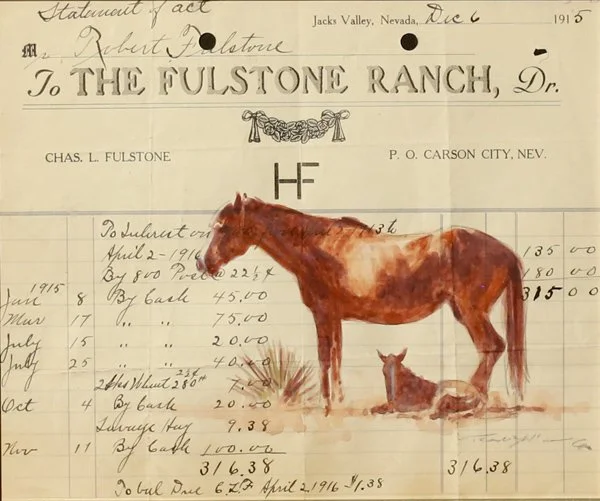 Statement of act
Jacks Valley, Nevada, Dec 6 1915
Mr. Robert Fulstone
To THE FULSTONE RANCH, Dr.
CHAS. L. FULSTONE
P. O. CARSON CITY, NEV.
HF
To Interest on
April 2 - 1916 135 00
By 800 Posts @ 22½ ¢ 180 00
1915 315 00
Jan 8 By Cash 45.00
Mar 17 " " 75.00
July 15 " " 20.00
July 25 " " 40.00
2 sks Wheat 280# 2½¢ 7.00
Oct 4 By Cash 20.00
Hay 9.38
Nov 11 By Cash 100.00
316.38 316.38
To bal Due C.L.F. April 2 1916 $1.38